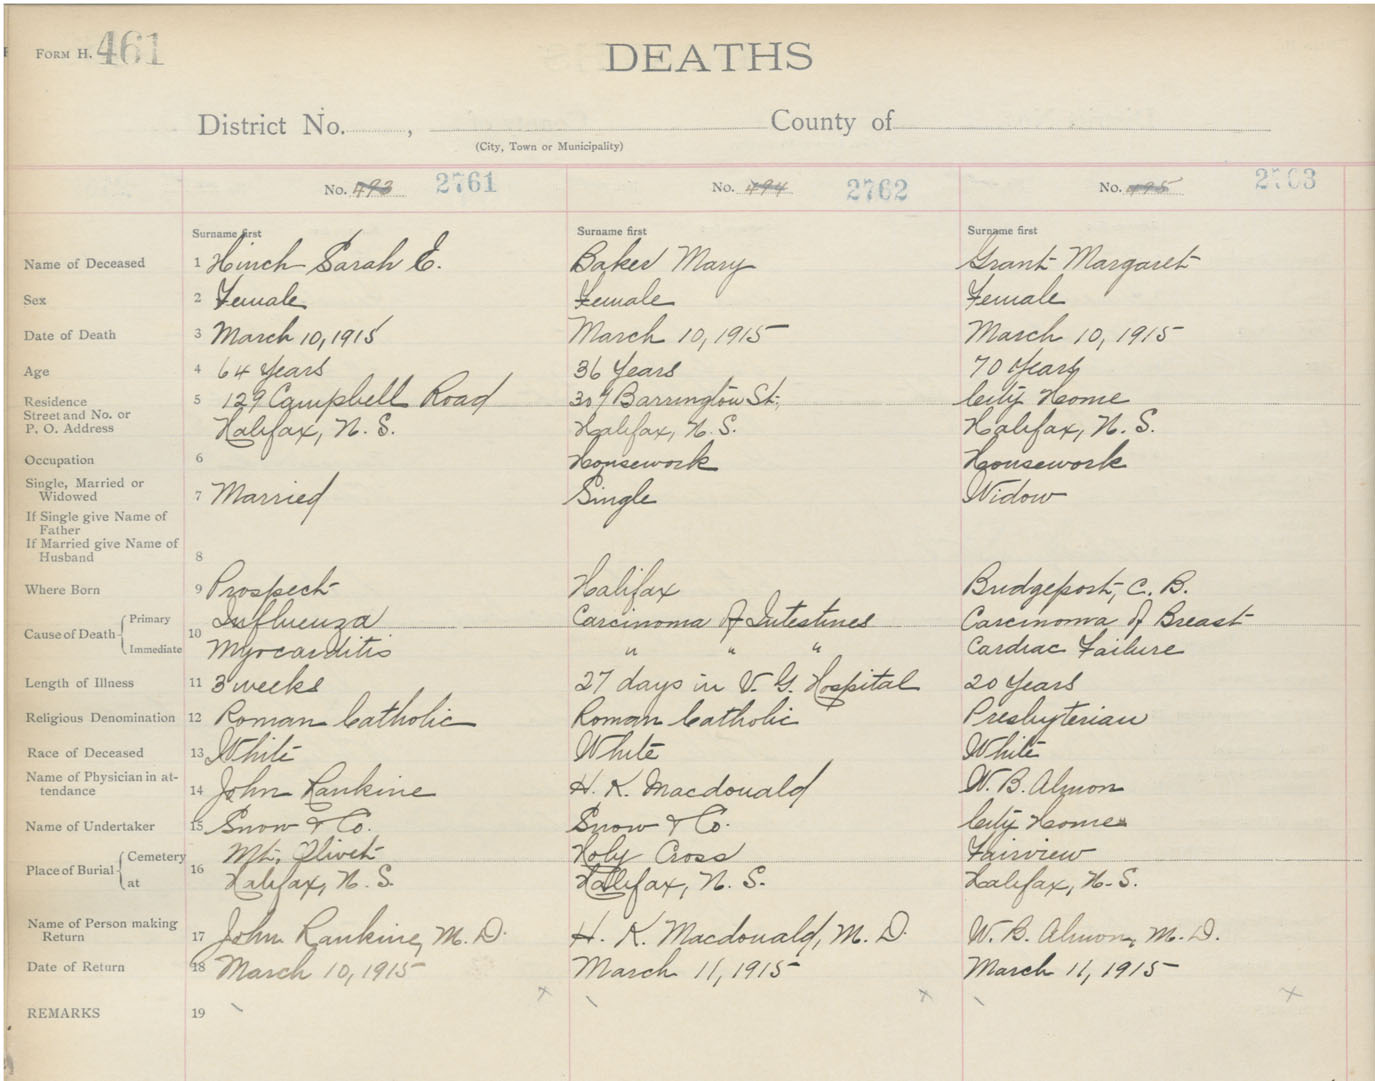 FORM H. 461
DEATHS
District No. , County of
(City, Town or Municipality)
No. 493 2761 No. 494 2762 No. 495 2763
Surname first Surname first Surname first
Name of Deceased 1 Hinch Sarah E. Baker Mary Grant Margaret
Sex 2 Female Female Female
Date of Death 3 March 10, 1915 March 10, 1915 March 10, 1915
Age 4 64 Years 36 Years 70 Years
Residence 5 129 Campbell Road 309 Barrington St., City Home
Street and No. or
P. O. Address Halifax, N. S. Halifax, N. S. Halifax, N. S.
Occupation 6 Housework Housework
Single, Married or
Widowed 7 Married Single Widow
If Single give Name of
Father
If Married give Name of
Husband 8
Where Born 9 Prospect Halifax Bridgeport, C. B.
Cause of Death Primary 10 Influenza Carcinoma of Intestines Carcinoma of Breast
Immediate Myocarditis " " " Cardiac Failure
Length of Illness 11 3 weeks 27 days in V. G. Hospital 20 Years
Religious Denomination 12 Roman Catholic Roman Catholic Presbyterian
Race of Deceased 13 White White White
Name of Physician in at-
tendance 14 John Rankine H. K. Macdonald W. B. Almon
Name of Undertaker 15 Snow & Co. Snow & Co. City Home
Place of Burial Cemetery 16 Mt. Olivet Holy Cross Fairview
at Halifax, N. S. Halifax, N. S. Halifax, N. S.
Name of Person making
Return 17 John Rankine, M. D. H. K. Macdonald, M. D. W. B. Almon, M. D.
Date of Return 18 March 10, 1915 March 11, 1915 March 11, 1915
REMARKS 19